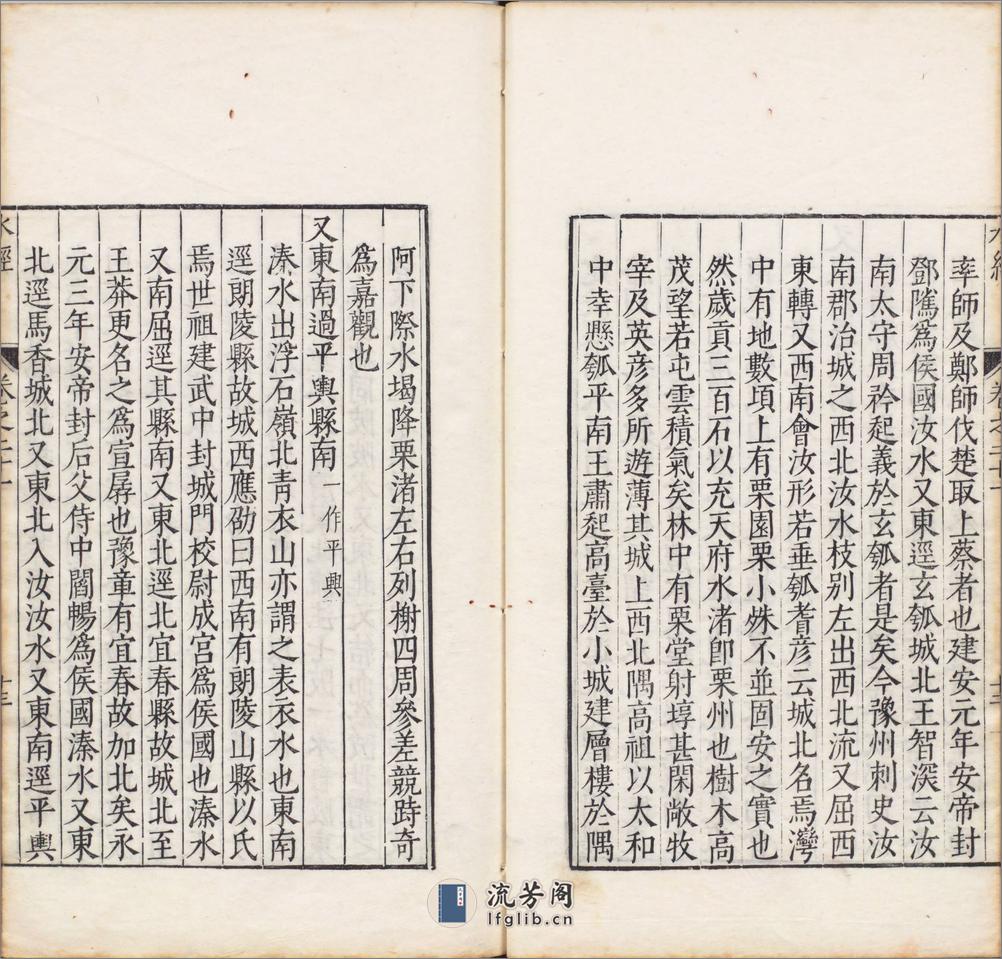 率師及鄭師伐楚取上蔡者也建安元年安帝封
鄧隲爲侯國汝水又東逕玄瓠城北王智深云汝
南太守周矜起義於玄瓠者是矣今豫州刺史汝
南郡治城之西北汝水枝别左出西北流又屈西
東轉又西南會汝形若垂瓠耆彦云城北名焉灣
中有地數頃上有栗園栗小姝不並固安之實也
然歲貢三百石以充天府水渚卽栗州也樹木高
茂望若屯雲積氣矣林中有栗堂射埻甚閑敞牧
宰及英彦多所遊薄其城上西北隅高祖以太和
中幸懸瓠平南王肅起高臺於小城建層樓於隅
阿下際水堨降栗渚左右列榭四周參差競跱奇
爲嘉觀也
又東南過平輿縣南一作平輿
溱水出浮石嶺北靑衣山亦謂之表衣水也東南
逕朗陵縣故城西應劭曰西南有朗陵山縣以氏
焉世祖建武中封城門校尉成宫爲侯國也溱水
又南屈逕其縣南又東北逕北宜春縣故城北至
王莽更名之爲宣孱也豫章有宜春故加北矣永
元三年安帝封后父侍中閻暢爲侯國溱水又東
北逕馬香城北又東北入汝汝水又東南逕平輿
水經
卷之二十一
十三
流芳阁
lfglib.cn